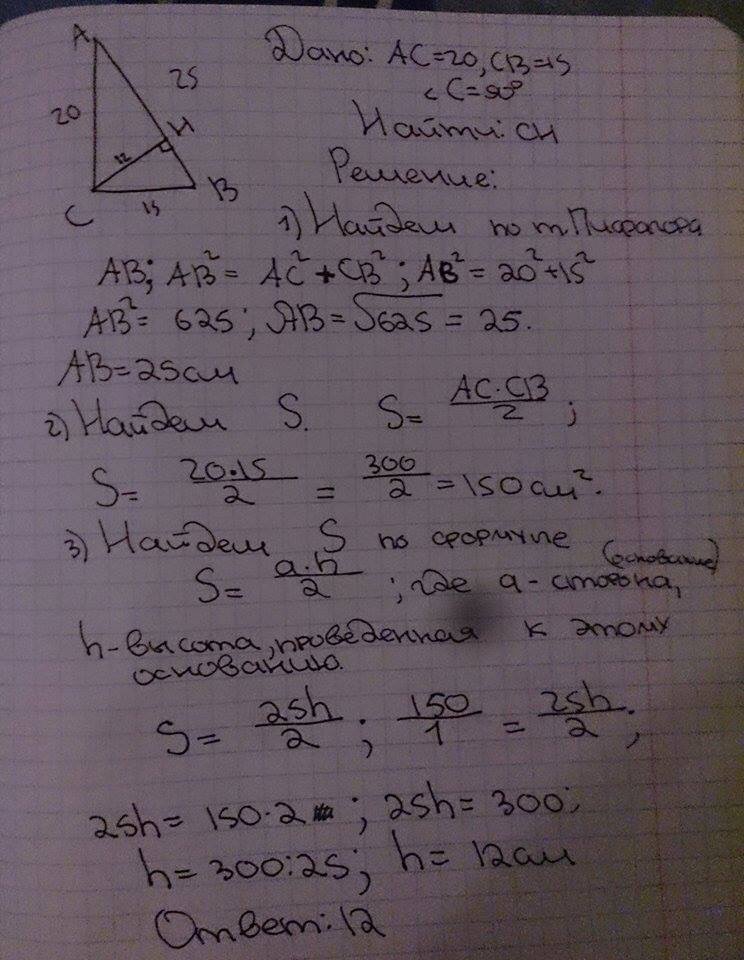 A
25
20
H
12
C
15
B
Дано: AC=20, CB=15
∠C=90°
Найти: CH
Решение:
1) Найдем по т. Пифагора
AB; AB² = AC² + CB²; AB² = 20²+15²
AB² = 625; AB = √625 = 25.
AB=25см
2) Найдем S. S= AC·CB/2;
S= 20·15/2 = 300/2 = 150 см².
3) Найдем S по формуле
S= a·h/2; где a-сторона, (основание)
h-высота, проведенная к этому
основанию.
S= 25h/2; 150/1 = 25h/2;
25h= 150·2; 25h= 300;
h= 300:25; h= 12см
Ответ: 12